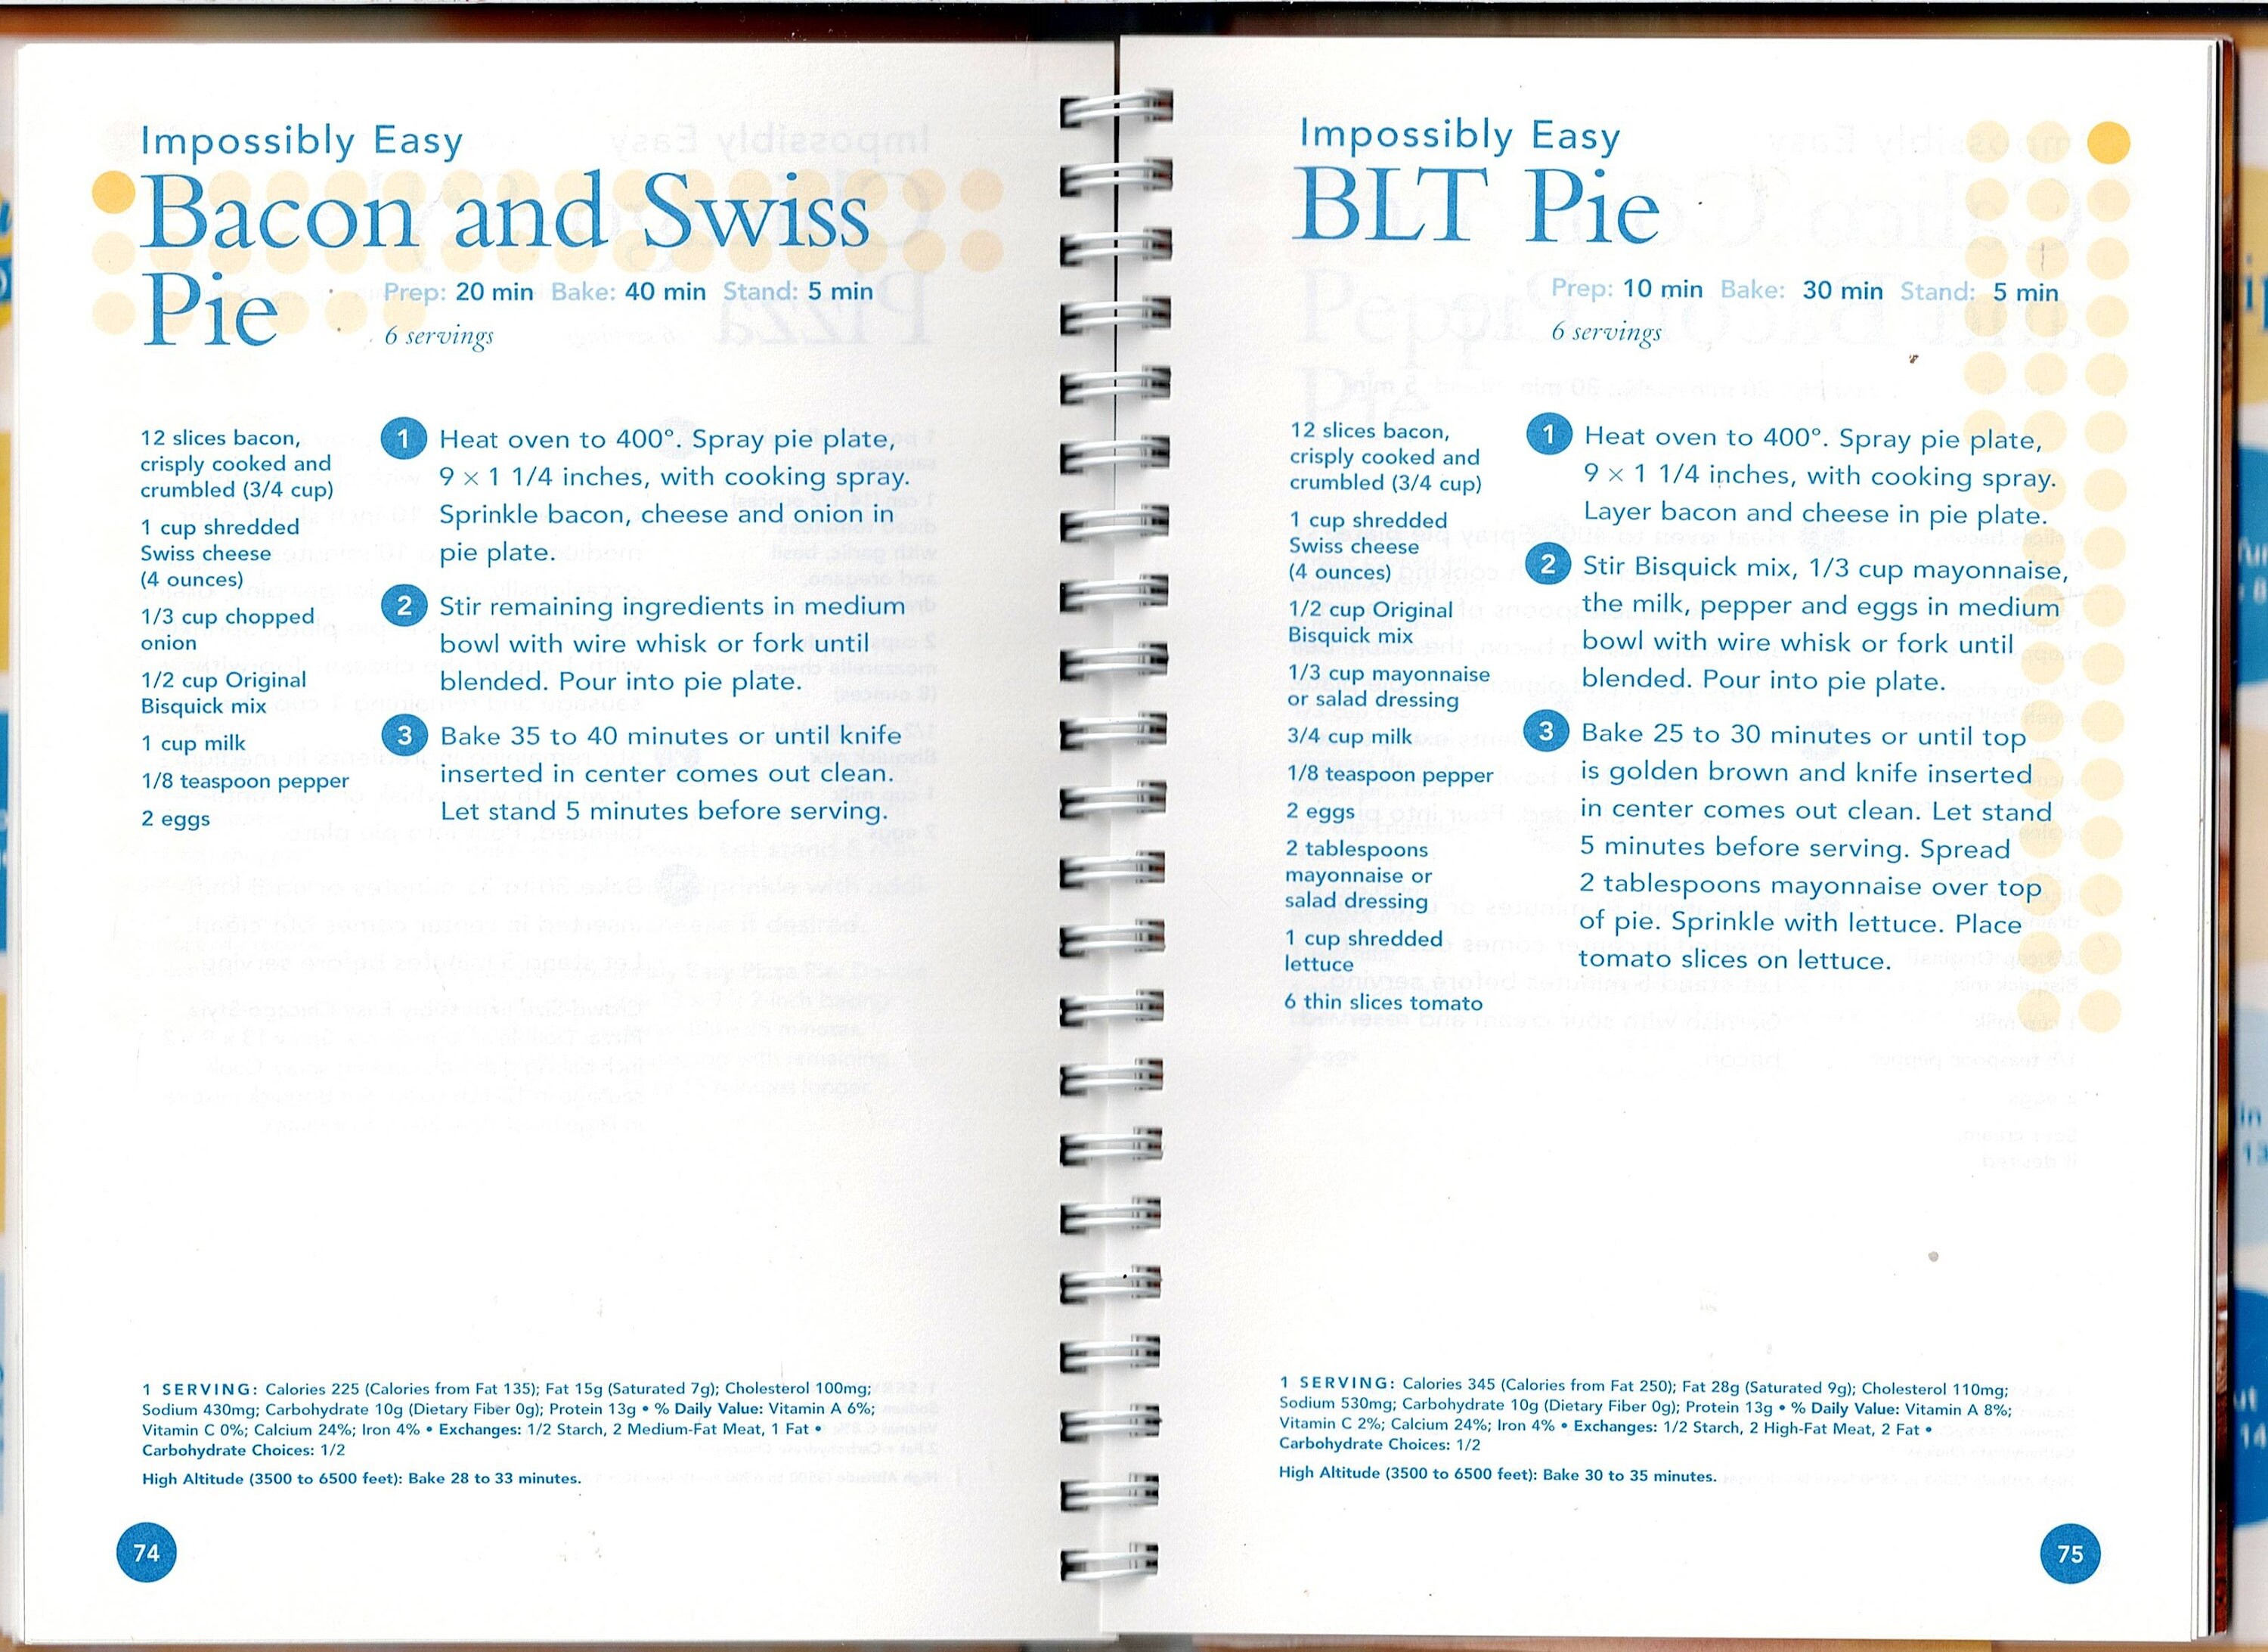 Impossibly Easy
Bacon and Swiss
Pie
Prep: 20 min Bake: 40 min Stand: 5 min
6 servings
12 slices bacon,
crisply cooked and
crumbled (3/4 cup)
1 cup shredded
Swiss cheese
(4 ounces)
1/3 cup chopped
onion
1/2 cup Original
Bisquick mix
1 cup milk
1/8 teaspoon pepper
2 eggs
1 Heat oven to 400°. Spray pie plate,
9 × 1 1/4 inches, with cooking spray.
Sprinkle bacon, cheese and onion in
pie plate.
2 Stir remaining ingredients in medium
bowl with wire whisk or fork until
blended. Pour into pie plate.
3 Bake 35 to 40 minutes or until knife
inserted in center comes out clean.
Let stand 5 minutes before serving.
1 SERVING: Calories 225 (Calories from Fat 135); Fat 15g (Saturated 7g); Cholesterol 100mg;
Sodium 430mg; Carbohydrate 10g (Dietary Fiber 0g); Protein 13g • % Daily Value: Vitamin A 6%;
Vitamin C 0%; Calcium 24%; Iron 4% • Exchanges: 1/2 Starch, 2 Medium-Fat Meat, 1 Fat •
Carbohydrate Choices: 1/2
High Altitude (3500 to 6500 feet): Bake 28 to 33 minutes.
74
Impossibly Easy
BLT Pie
Prep: 10 min Bake: 30 min Stand: 5 min
6 servings
12 slices bacon,
crisply cooked and
crumbled (3/4 cup)
1 cup shredded
Swiss cheese
(4 ounces)
1/2 cup Original
Bisquick mix
1/3 cup mayonnaise
or salad dressing
3/4 cup milk
1/8 teaspoon pepper
2 eggs
2 tablespoons
mayonnaise or
salad dressing
1 cup shredded
lettuce
6 thin slices tomato
1 Heat oven to 400°. Spray pie plate,
9 × 1 1/4 inches, with cooking spray.
Layer bacon and cheese in pie plate.
2 Stir Bisquick mix, 1/3 cup mayonnaise,
the milk, pepper and eggs in medium
bowl with wire whisk or fork until
blended. Pour into pie plate.
3 Bake 25 to 30 minutes or until top
is golden brown and knife inserted
in center comes out clean. Let stand
5 minutes before serving. Spread
2 tablespoons mayonnaise over top
of pie. Sprinkle with lettuce. Place
tomato slices on lettuce.
1 SERVING: Calories 345 (Calories from Fat 250); Fat 28g (Saturated 9g); Cholesterol 110mg;
Sodium 530mg; Carbohydrate 10g (Dietary Fiber 0g); Protein 13g • % Daily Value: Vitamin A 8%;
Vitamin C 2%; Calcium 24%; Iron 4% • Exchanges: 1/2 Starch, 2 High-Fat Meat, 2 Fat •
Carbohydrate Choices: 1/2
High Altitude (3500 to 6500 feet): Bake 30 to 35 minutes.
75